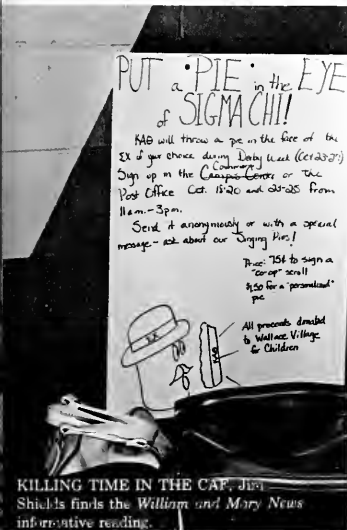 PUT a "PIE" in the EYE
of SIGMA CHI!
KAΘ will throw a pie in the face of the
ΣX of your choice during Derby Week (Oct 23-27)
Community
Sign up in the Campus Center or the
Post Office Oct. 18-20 and 23-25 from
11am.-3pm.
Send it anonymously or with a special
message - ask about our Singing Pies!
Price: 75¢ to sign a
"co-op" scroll
for a "personalized"
pie
All proceeds donated
to Wallace Village
for Children
ΣX
KAΘ
KILLING TIME IN THE CAF, Jim
Shields finds the William and Mary News
informative reading.